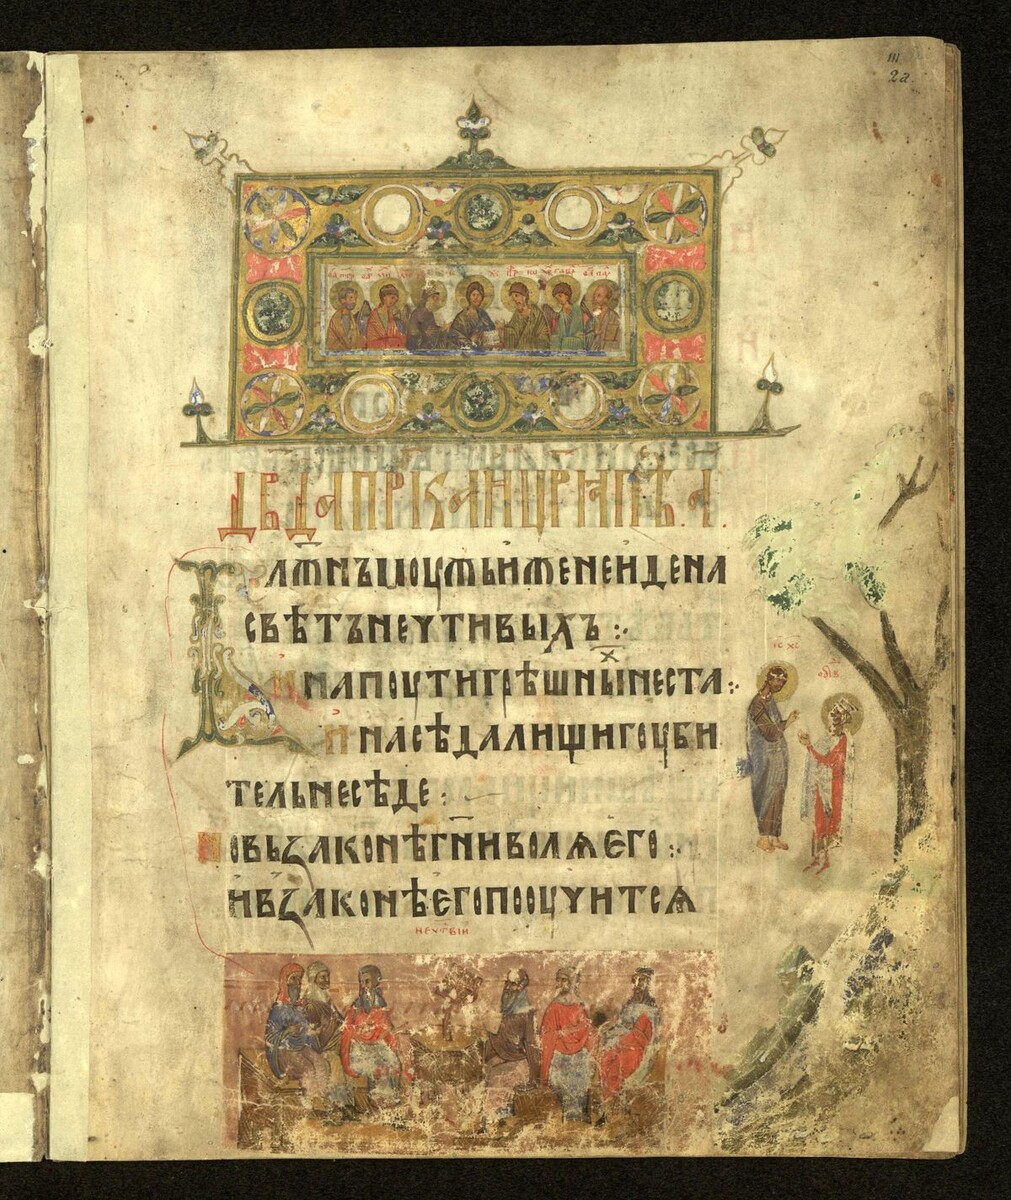 III
2а
ДВ҃ДА ПР҃КА И ЦР҃ѦПѢ҃.А.
БЛЖ҃НЪ МОУЖЬ ИЖЕ НЕ ИДЕ НА
СВѢТЪ НЕЧТИВЫХЪ :·
И НА ПОУТИ ГРѢШНЫⷯ НЕ СТА :·
И НА СѢДАЛИЩИ ГОУБИ
ТЕЛЬ НЕ СѢДЕ :
НО ВЬ ЗАКОНѢ ГН҃И ВОЛѦ ЕГО :·
И В ЗАКОНѢ ЕГО ПООУЧИТСѦ
ІС ХС